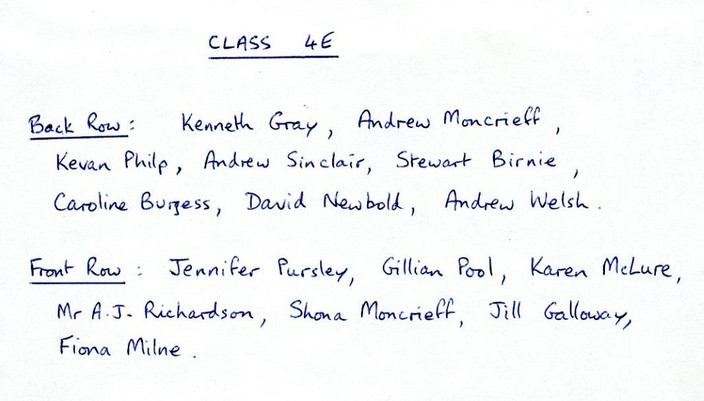 CLASS 4E
Back Row: Kenneth Gray, Andrew Moncrieff,
Kevan Philp, Andrew Sinclair, Stewart Birnie,
Caroline Burgess, David Newbold, Andrew Welsh.
Front Row: Jennifer Pursley, Gillian Pool, Karen McLure,
Mr A.J. Richardson, Shona Moncrieff, Jill Galloway,
Fiona Milne.